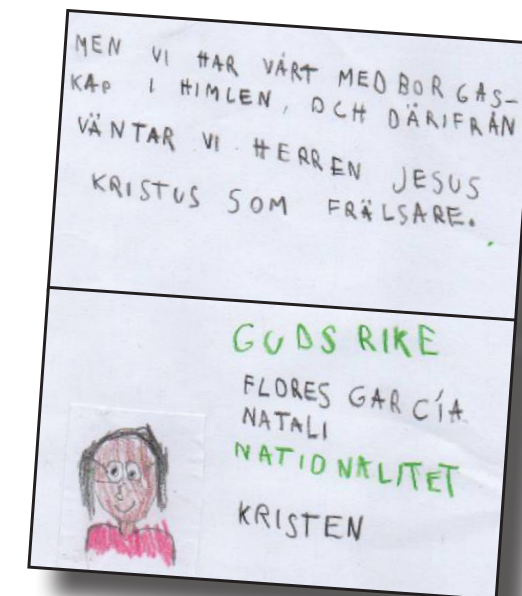 MEN VI HAR VÅRT MEDBORGAS-
KAP I HIMLEN, OCH DÄRIFRÅN
VÄNTAR VI HERREN JESUS
KRISTUS SOM FRÄLSARE.
GUDS RIKE
FLORES GARCÍA
NATALI
NATIONALITET
KRISTEN